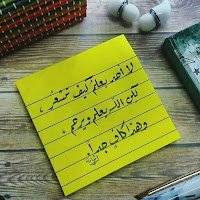 لا أحد يعلم كيف تشعر ،
لكن الله يعلم ويرحم ،
وهذا كافٍ جداً